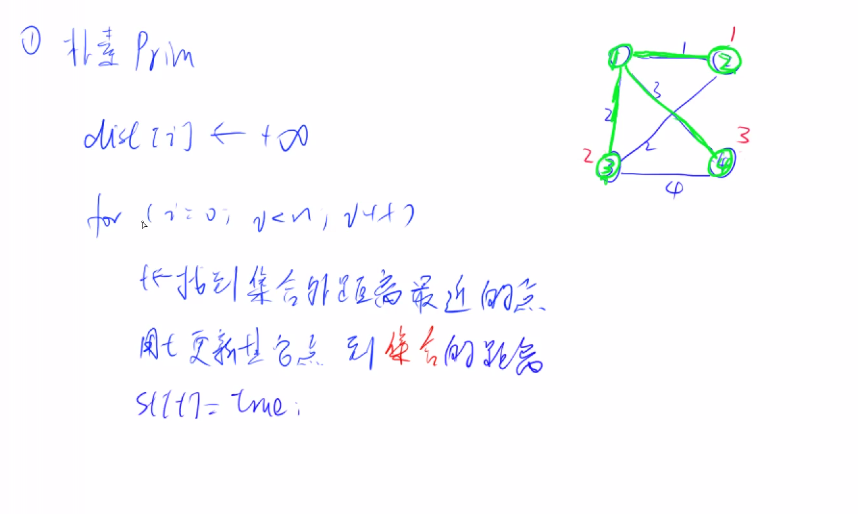 ① 朴素 Prim
dist[i] ← +∞
for (i=0; i<n; i++)
t←找到集合外距离最近的点
用t更新其它点 到 集合的距离
s[t]=true;
1
① 1 ②
3
2
2
2 ③ ④ 3
4